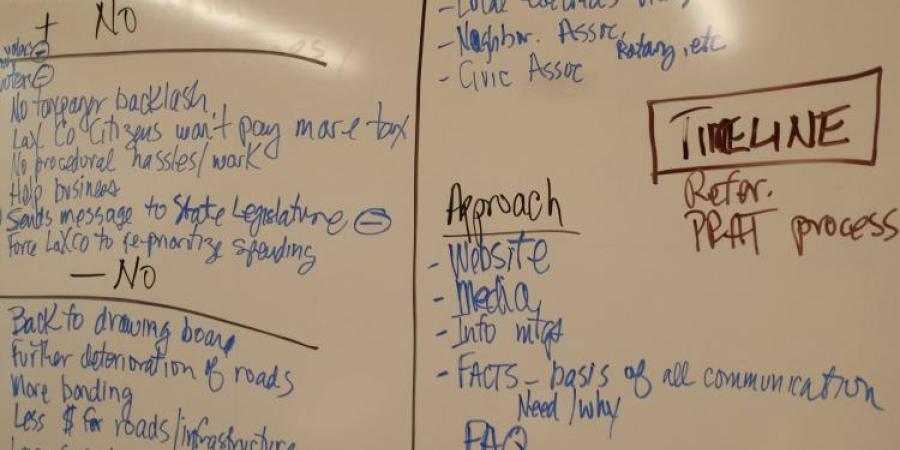 + No
voters
No taxpayer backlash
LaX Co Citizens won't pay more tax
No procedural hassles/work
Help business
Sends message to State Legislature
Force LaXCo to re-prioritize spending
— No
Back to drawing board
Further deterioration of roads
More bonding
Less $ for roads/infrastructure
- Local
- Neighbor. Assoc, Rotary, etc
- Civic Assoc
TIMELINE
Refer.
PRAT process
Approach
- Website
- Media
- Info mtgs
- FACTS - basis of all communication
Need/why
FAQ